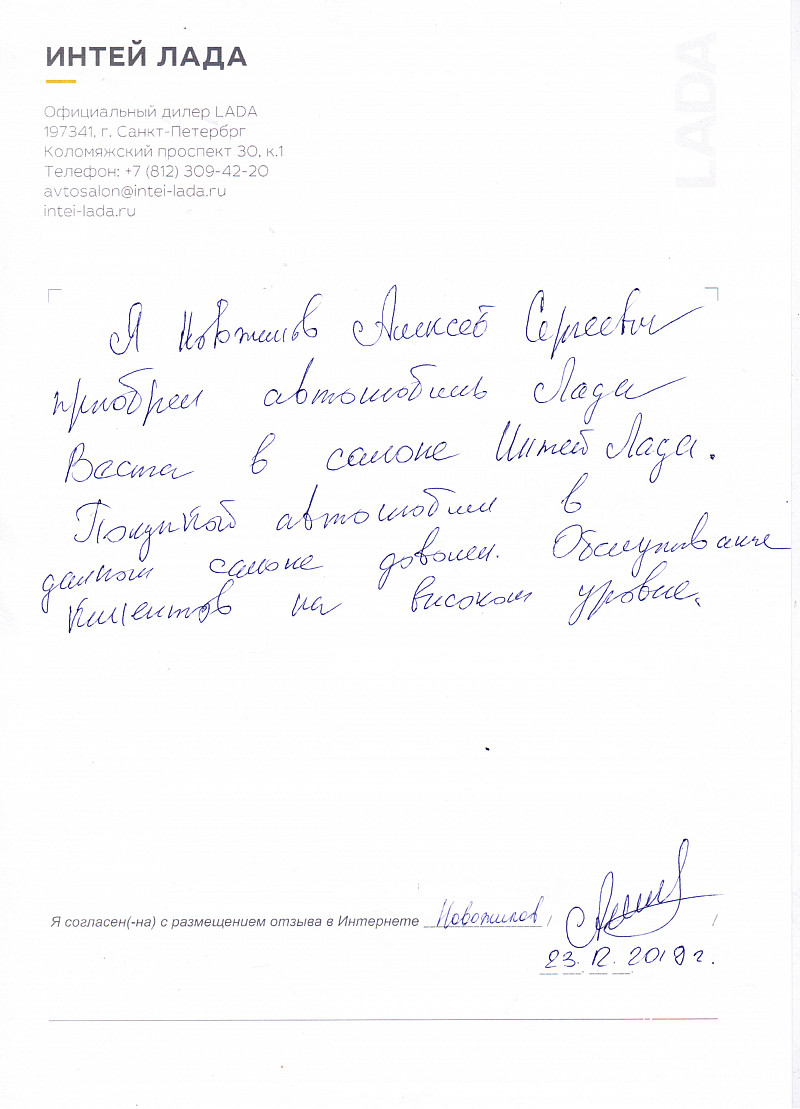 ИНТЕЙ ЛАДА
LADA
Официальный дилер LADA
197341, г. Санкт-Петербрг
Коломяжский проспект 30, к.1
Телефон: +7 (812) 309-42-20
avtosalon@intei-lada.ru
intei-lada.ru
Я Новожилов Алексей Сергеевич
приобрел автомобиль Лада
Веста в салоне Интей Лада.
Покупкой автомобиля в
данном салоне доволен. Обслуживание
клиентов на высоком уровне.
Я согласен(-на) с размещением отзыва в Интернете Новожилов / /
23.12.2019 г.